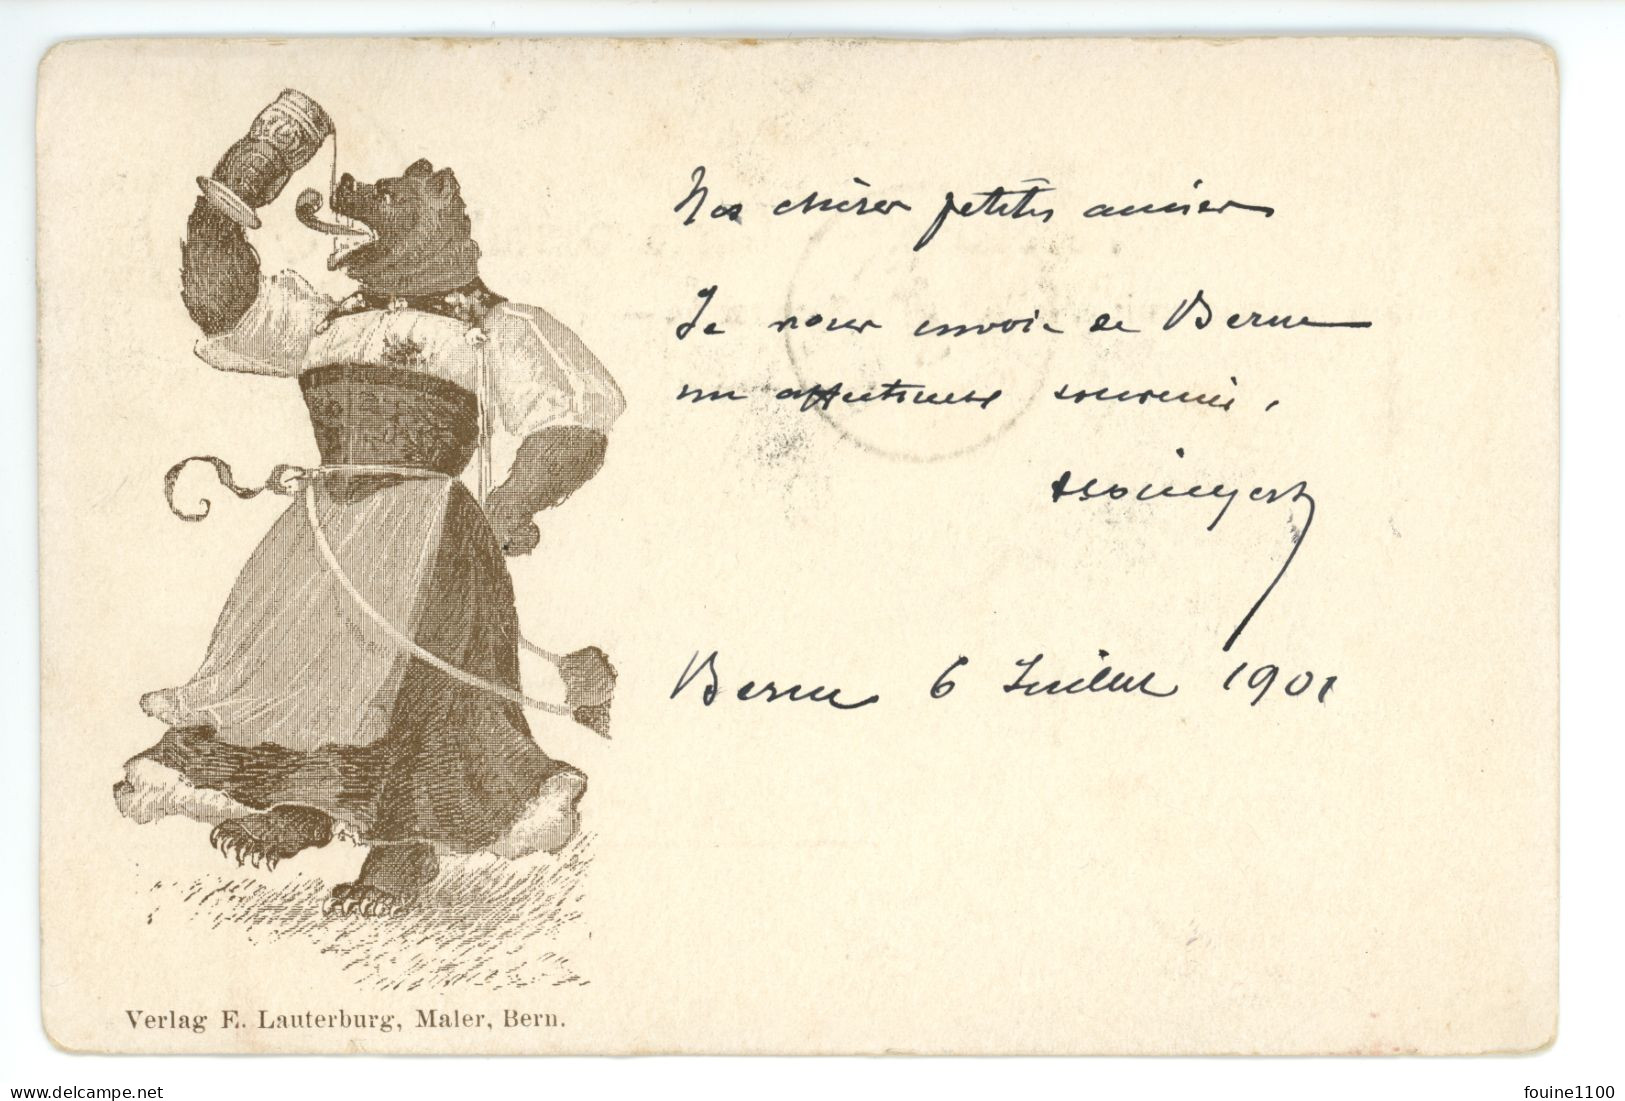 Nos chères petites amies
Je vous envoie de Berne
un affectueux souvenir.
Berne 6 Juillet 1901
Verlag E. Lauterburg, Maler, Bern.
www.delcampe.net
fouine1100